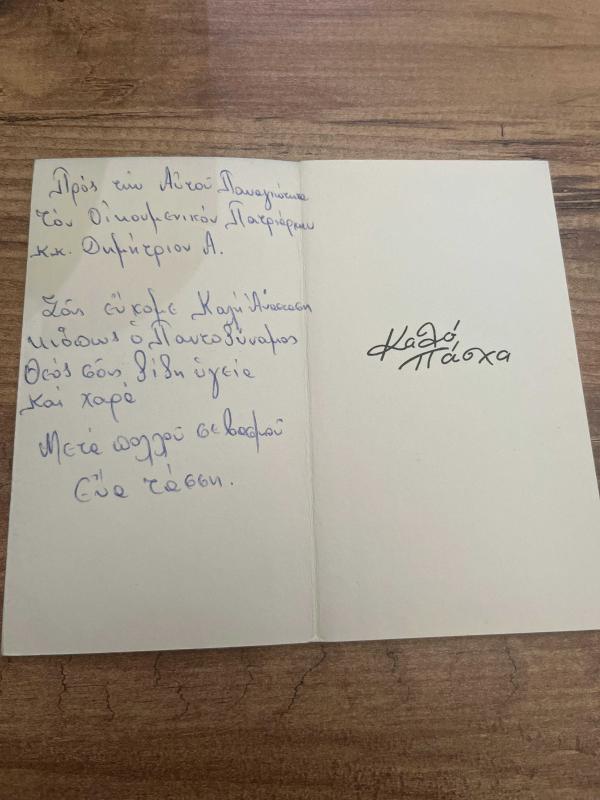 Πρός τήν Αὐτοῦ Παναγιότητα
τόν Οἰκουμενικόν Πατριάρχην
κ.κ. Δημήτριον Α.
Σᾶς εὔχομε Καλή Ἀνάσταση
κιθὼς ὁ Παντοδύναμος
Θεός σᾶς δίδη ὑγεία
καί χαρά
Μετά πολλοῦ σεβασμοῦ
Εὔα τάσση.
Καλό
Πάσχα